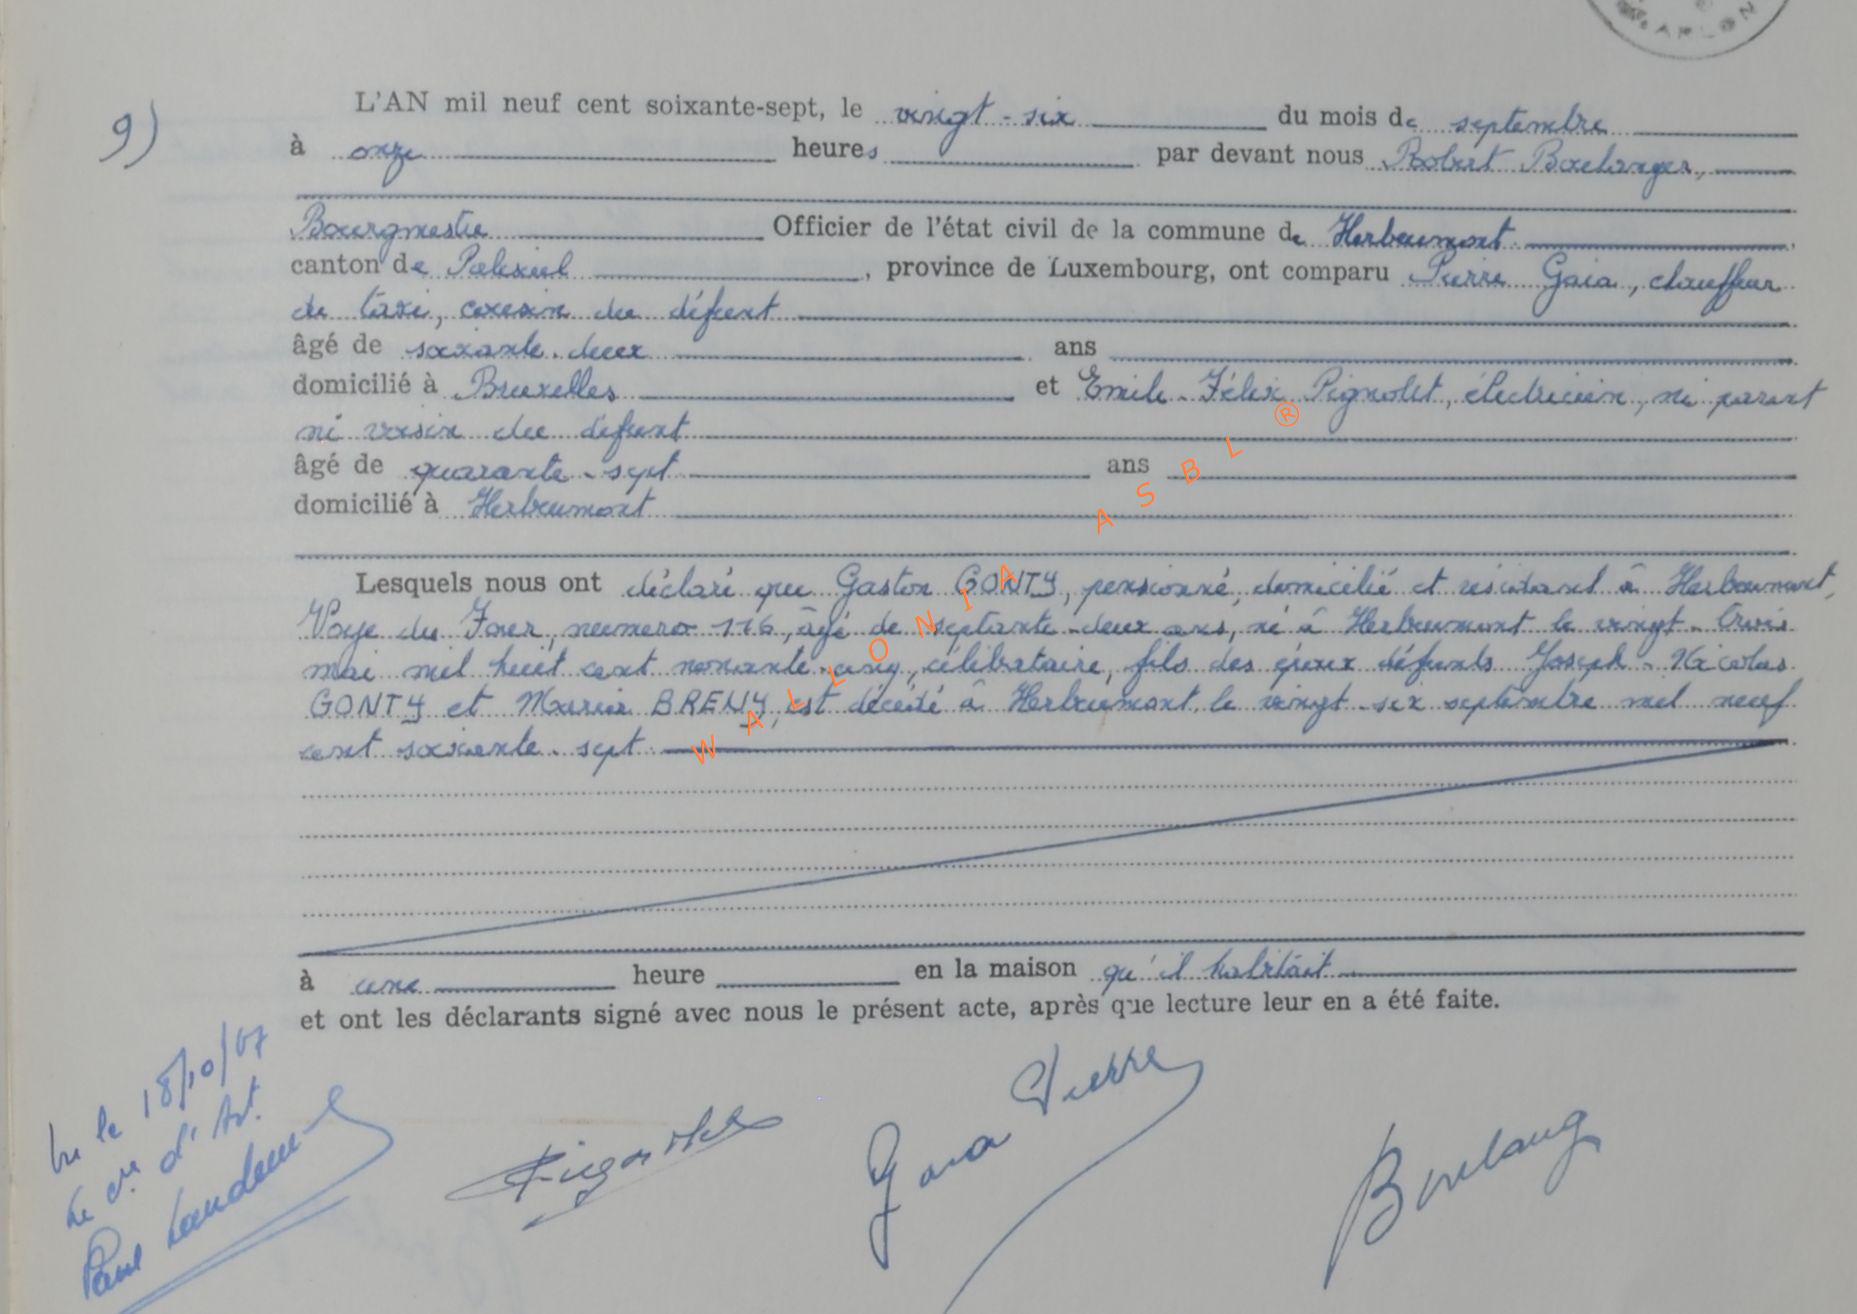 ARLON
9)
L'AN mil neuf cent soixante-sept, le vingt-six du mois de septembre
à onze heures par devant nous Robert Boulanger,
Bourgmestre Officier de l'état civil de la commune de Herbeumont
canton de Paliseul, province de Luxembourg, ont comparu Pierre Gaia, chauffeur
de taxi, cousin du défunt
âgé de soixante-deux ans
domicilié à Bruxelles et Emile-Félix Pignolet, électricien, ni parent
ni voisin du défunt
âgé de quarante-sept ans
domicilié à Herbeumont
Lesquels nous ont déclaré que Gaston GONTY, pensionné, domicilié et résidant à Herbeumont,
Voye du Four, numéro 116, âgé de septante-deux ans, né à Herbeumont le vingt-trois
mai mil huit cent nonante-cinq, célibataire, fils des époux défunts Joseph-Nicolas
GONTY et Maria BREUY, est décédé à Herbeumont, le vingt-six septembre mil neuf
cent soixante-sept
WALLONIA ASBL ®
à une heure en la maison qu'il habitait
et ont les déclarants signé avec nous le présent acte, après que lecture leur en a été faite.
Vu le 18/10/67
Le cre d'Art.
Paul
Gaia Pierre
Boulang